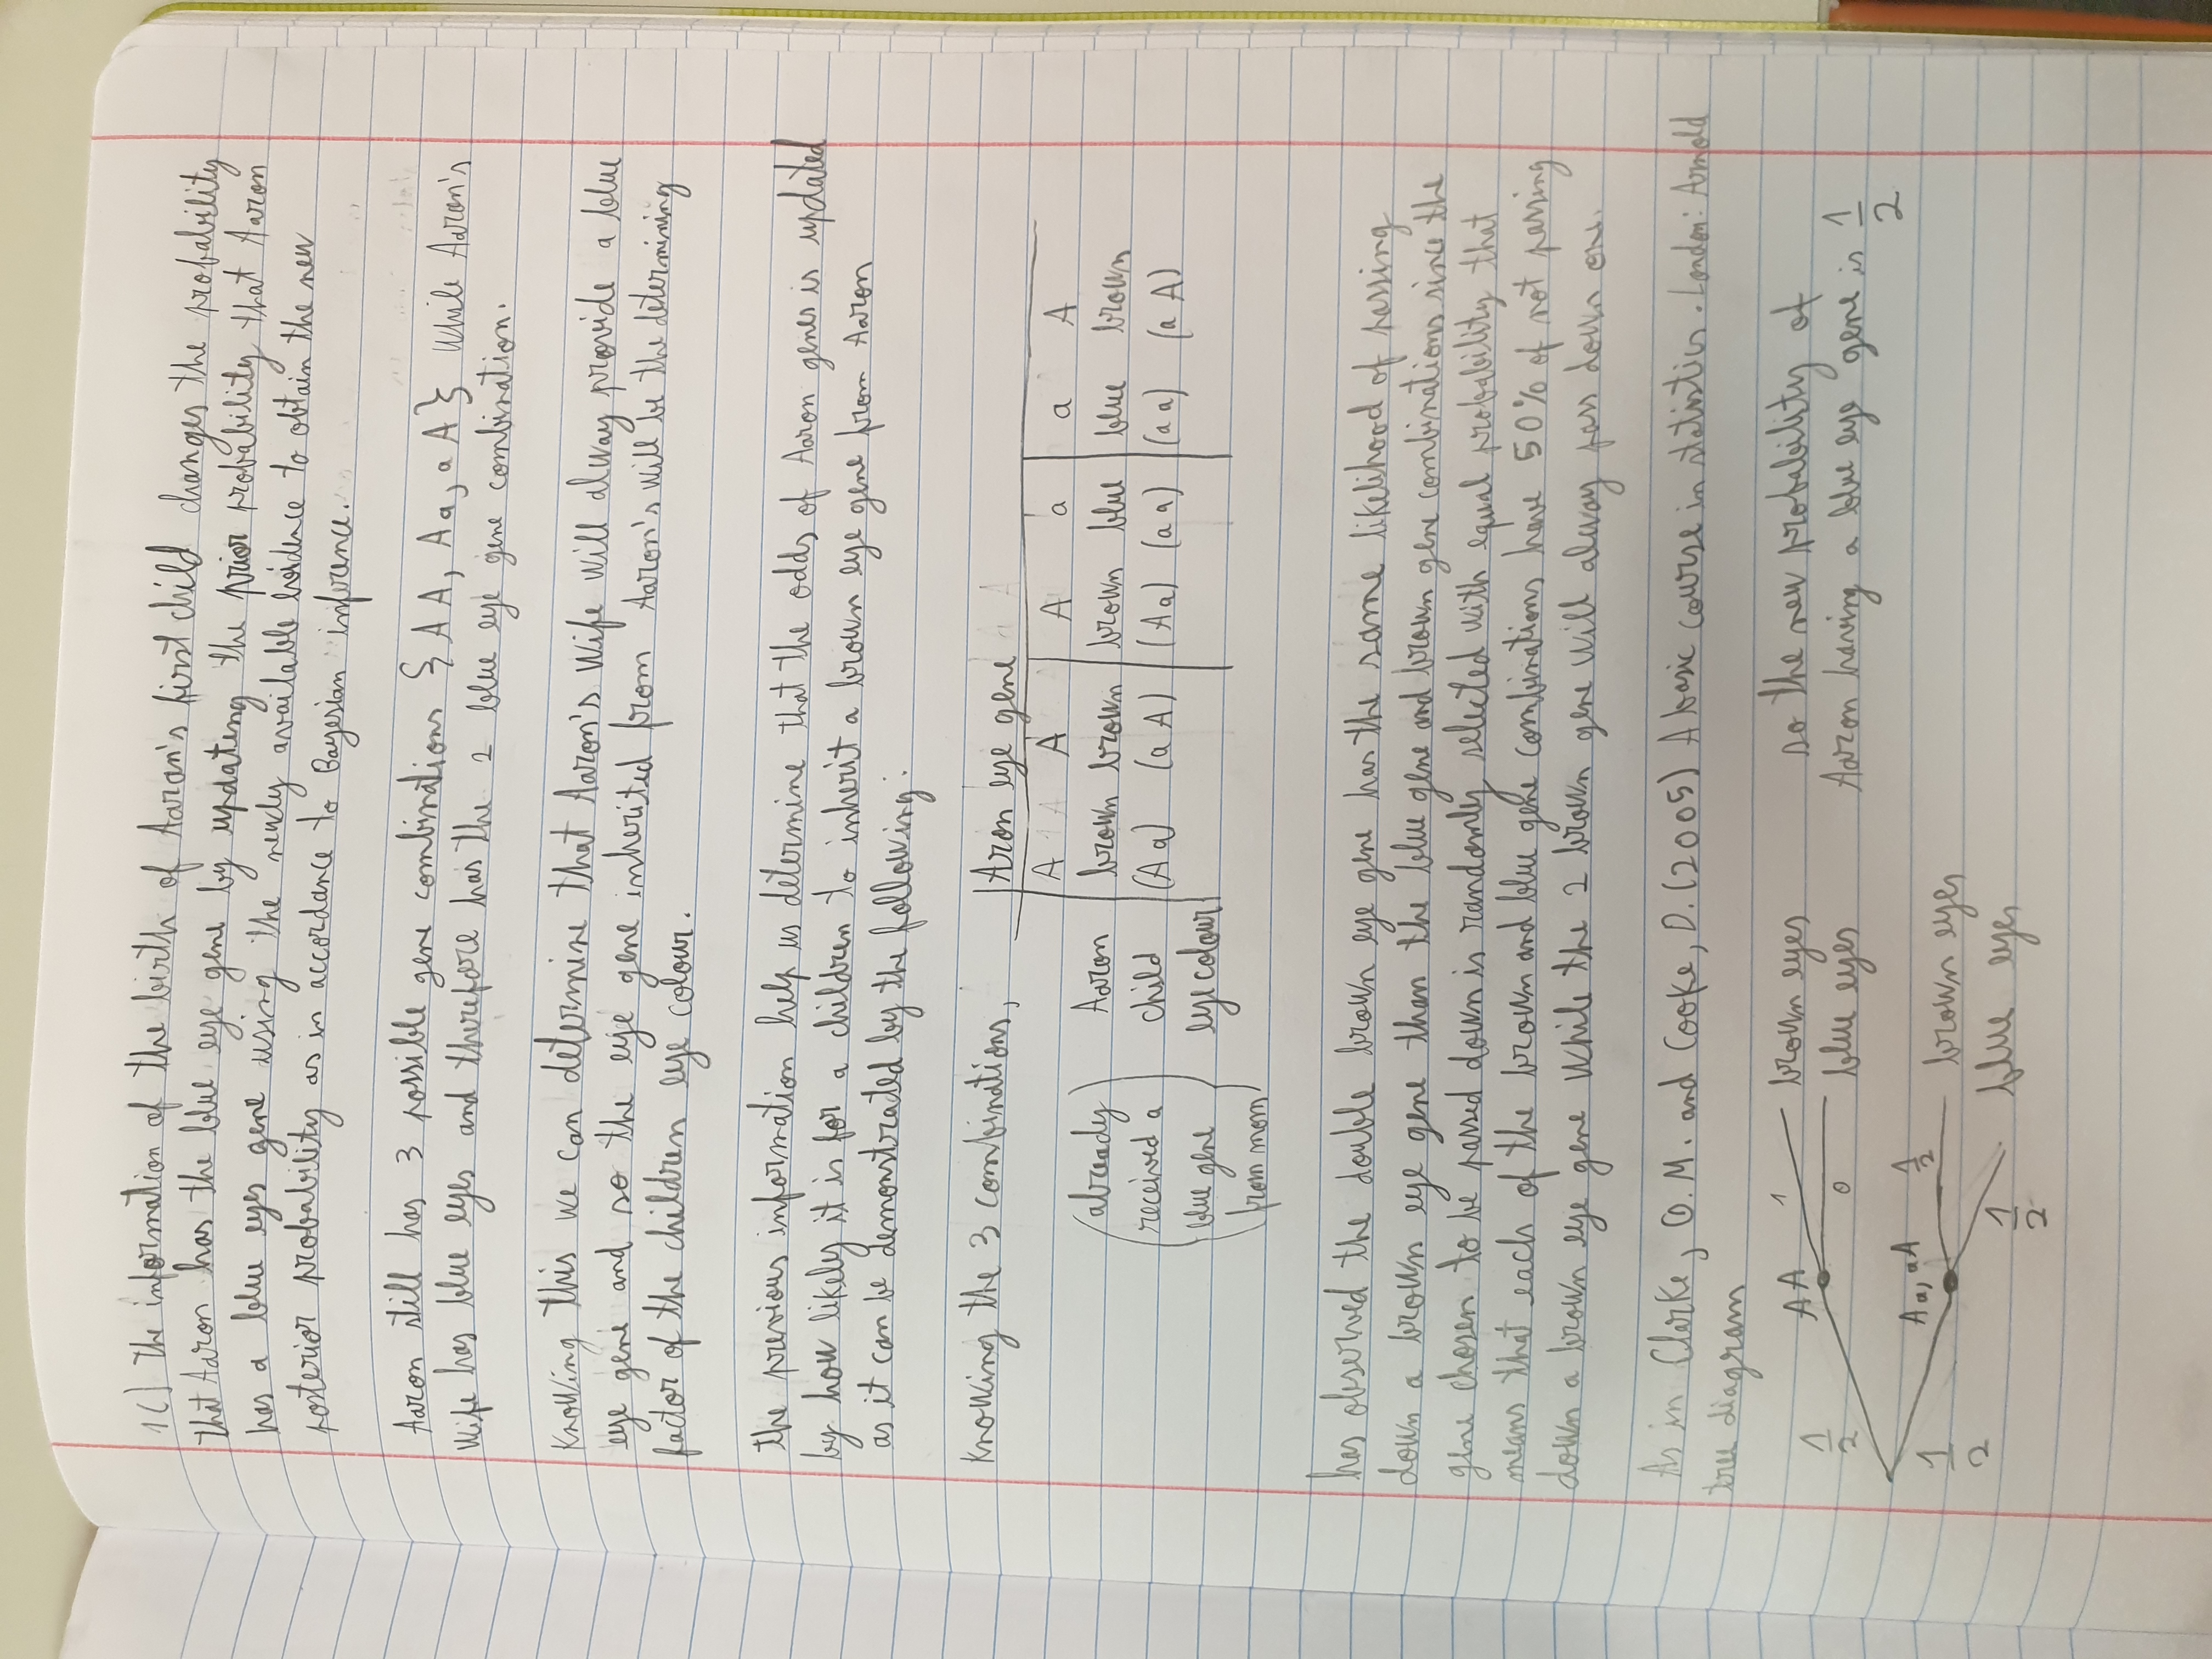 1C) The information of the birth of Aaran's first child changes the probability
that Aaron has the blue eye gene by updateng the prior probability that Aaron
has a blue eyes gene using the newly available evidence to obtain the new
posterior probability as in accordance to Bayesian inference.
Aaron still has 3 possible gene combinations { AA, Aa, aA } while Aaron's
wife has blue eyes and therefore has the 2 blue eye gene combination.
Knowing this we can determine that Aaron's wife will alway provide a blue
eye gene and so the eye gene inherited from Aaron's will be the determining
factor of the children eye colour.
the previous information help us determine that the odds of Aaron genes is updated
by how likely it is for a children to inherit a brown eye gene from Aaron
as it can be demonstrated by the following:
Knowing the 3 combinations,
Aron eye gene
A A A a a A
(already received a blue gene from mom)
Aaron child eye colour
brown brown brown blue blue brown
(Aa) (aA) (Aa) (aa) (aa) (aA)
has observed the double brown eye gene has the same likelihood of passing
down a brown eye gene than the blue gene and brown gene combinations since the
gene chosen to be passed down is randomly selected with equal probability that
means that each of the brown and blue gene combinations have 50% of not passing
down a brown eye gene while the 2 brown gene will alway pass down one.
As in Clarke, G.M. and Cooke, D. (2005) A basic course in statistics. London: Arnold
tree diagram
1/2 AA 1 brown eyes
0 blue eyes
1/2 Aa, aA 1/2 brown eyes
1/2 blue eyes
so the new probability of
Aaron having a blue eye gene is 1/2